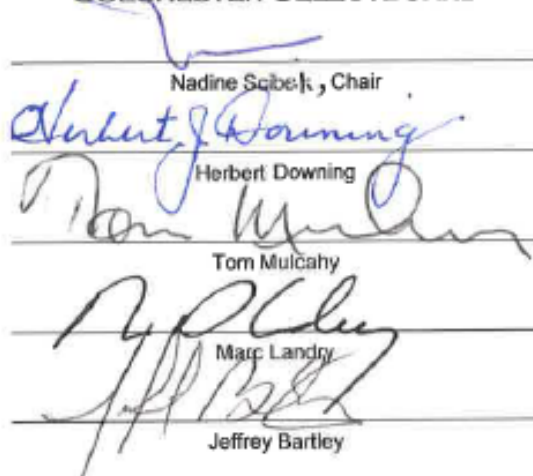 Nadine Scibek, Chair
Herbert J Downing
Herbert Downing
Tom Mulcahy
Tom Mulcahy
Marc Landry
Jeff Bartley
Jeffrey Bartley